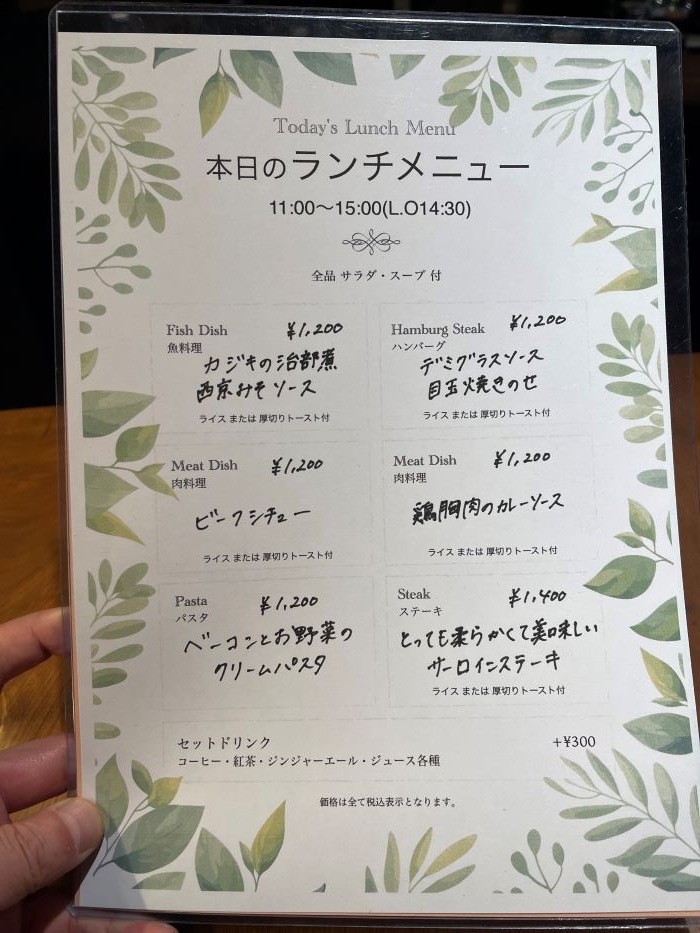 Today's Lunch Menu
本日のランチメニュー
11:00〜15:00(L.O14:30)
全品 サラダ・スープ 付
Fish Dish ¥1,200
魚料理
カジキの治部煮
西京みそソース
ライス または 厚切りトースト付
Hamburg Steak ¥1,200
ハンバーグ
デミグラスソース
目玉焼きのせ
ライス または 厚切りトースト付
Meat Dish ¥1,200
肉料理
ビーフシチュー
ライス または 厚切りトースト付
Meat Dish ¥1,200
肉料理
鶏胸肉のカレーソース
ライス または 厚切りトースト付
Pasta ¥1,200
パスタ
ベーコンとお野菜の
クリームパスタ
Steak ¥1,400
ステーキ
とっても柔らかくて美味しい
サーロインステーキ
ライス または 厚切りトースト付
セットドリンク +¥300
コーヒー・紅茶・ジンジャーエール・ジュース各種
価格は全て税込表示となります。